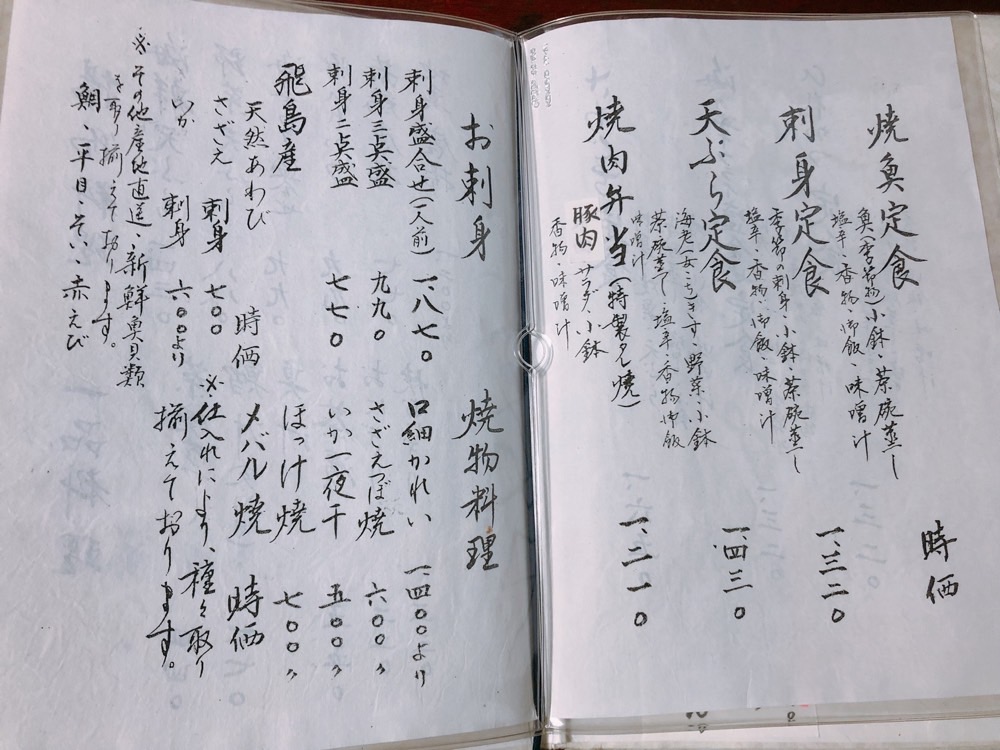 焼魚定食
魚(季節物)、小鉢、茶碗蒸し
塩辛、香物、御飯、味噌汁
時価
刺身定食
季節の刺身、小鉢、茶碗蒸し
塩辛、香物、御飯、味噌汁
一、三二〇
天ぷら定食
海老一本、きす、野菜、小鉢
茶碗蒸し、塩辛、香物、御飯
味噌汁
一、四三〇
焼肉弁当(特製タレ焼)
豚肉 サラダ、小鉢
香物、味噌汁
一、二一〇
お刺身
刺身盛合せ(一人前) 一、八七〇
刺身三点盛 九九〇
刺身二点盛 七七〇
飛島産
天然あわび 時価
さざえ 刺身 七〇〇
いか 刺身 六〇〇より
※その他産地直送、新鮮魚貝類
を取り揃えております。
鯛、平目、そい、赤えび
焼物料理
口細かれい 一、四〇〇より
さざえつぼ焼 六〇〇〃
いか一夜干 五〇〇〃
ほっけ焼 七〇〇〃
メバル焼 時価
※仕入れにより、種々取り
揃えております。